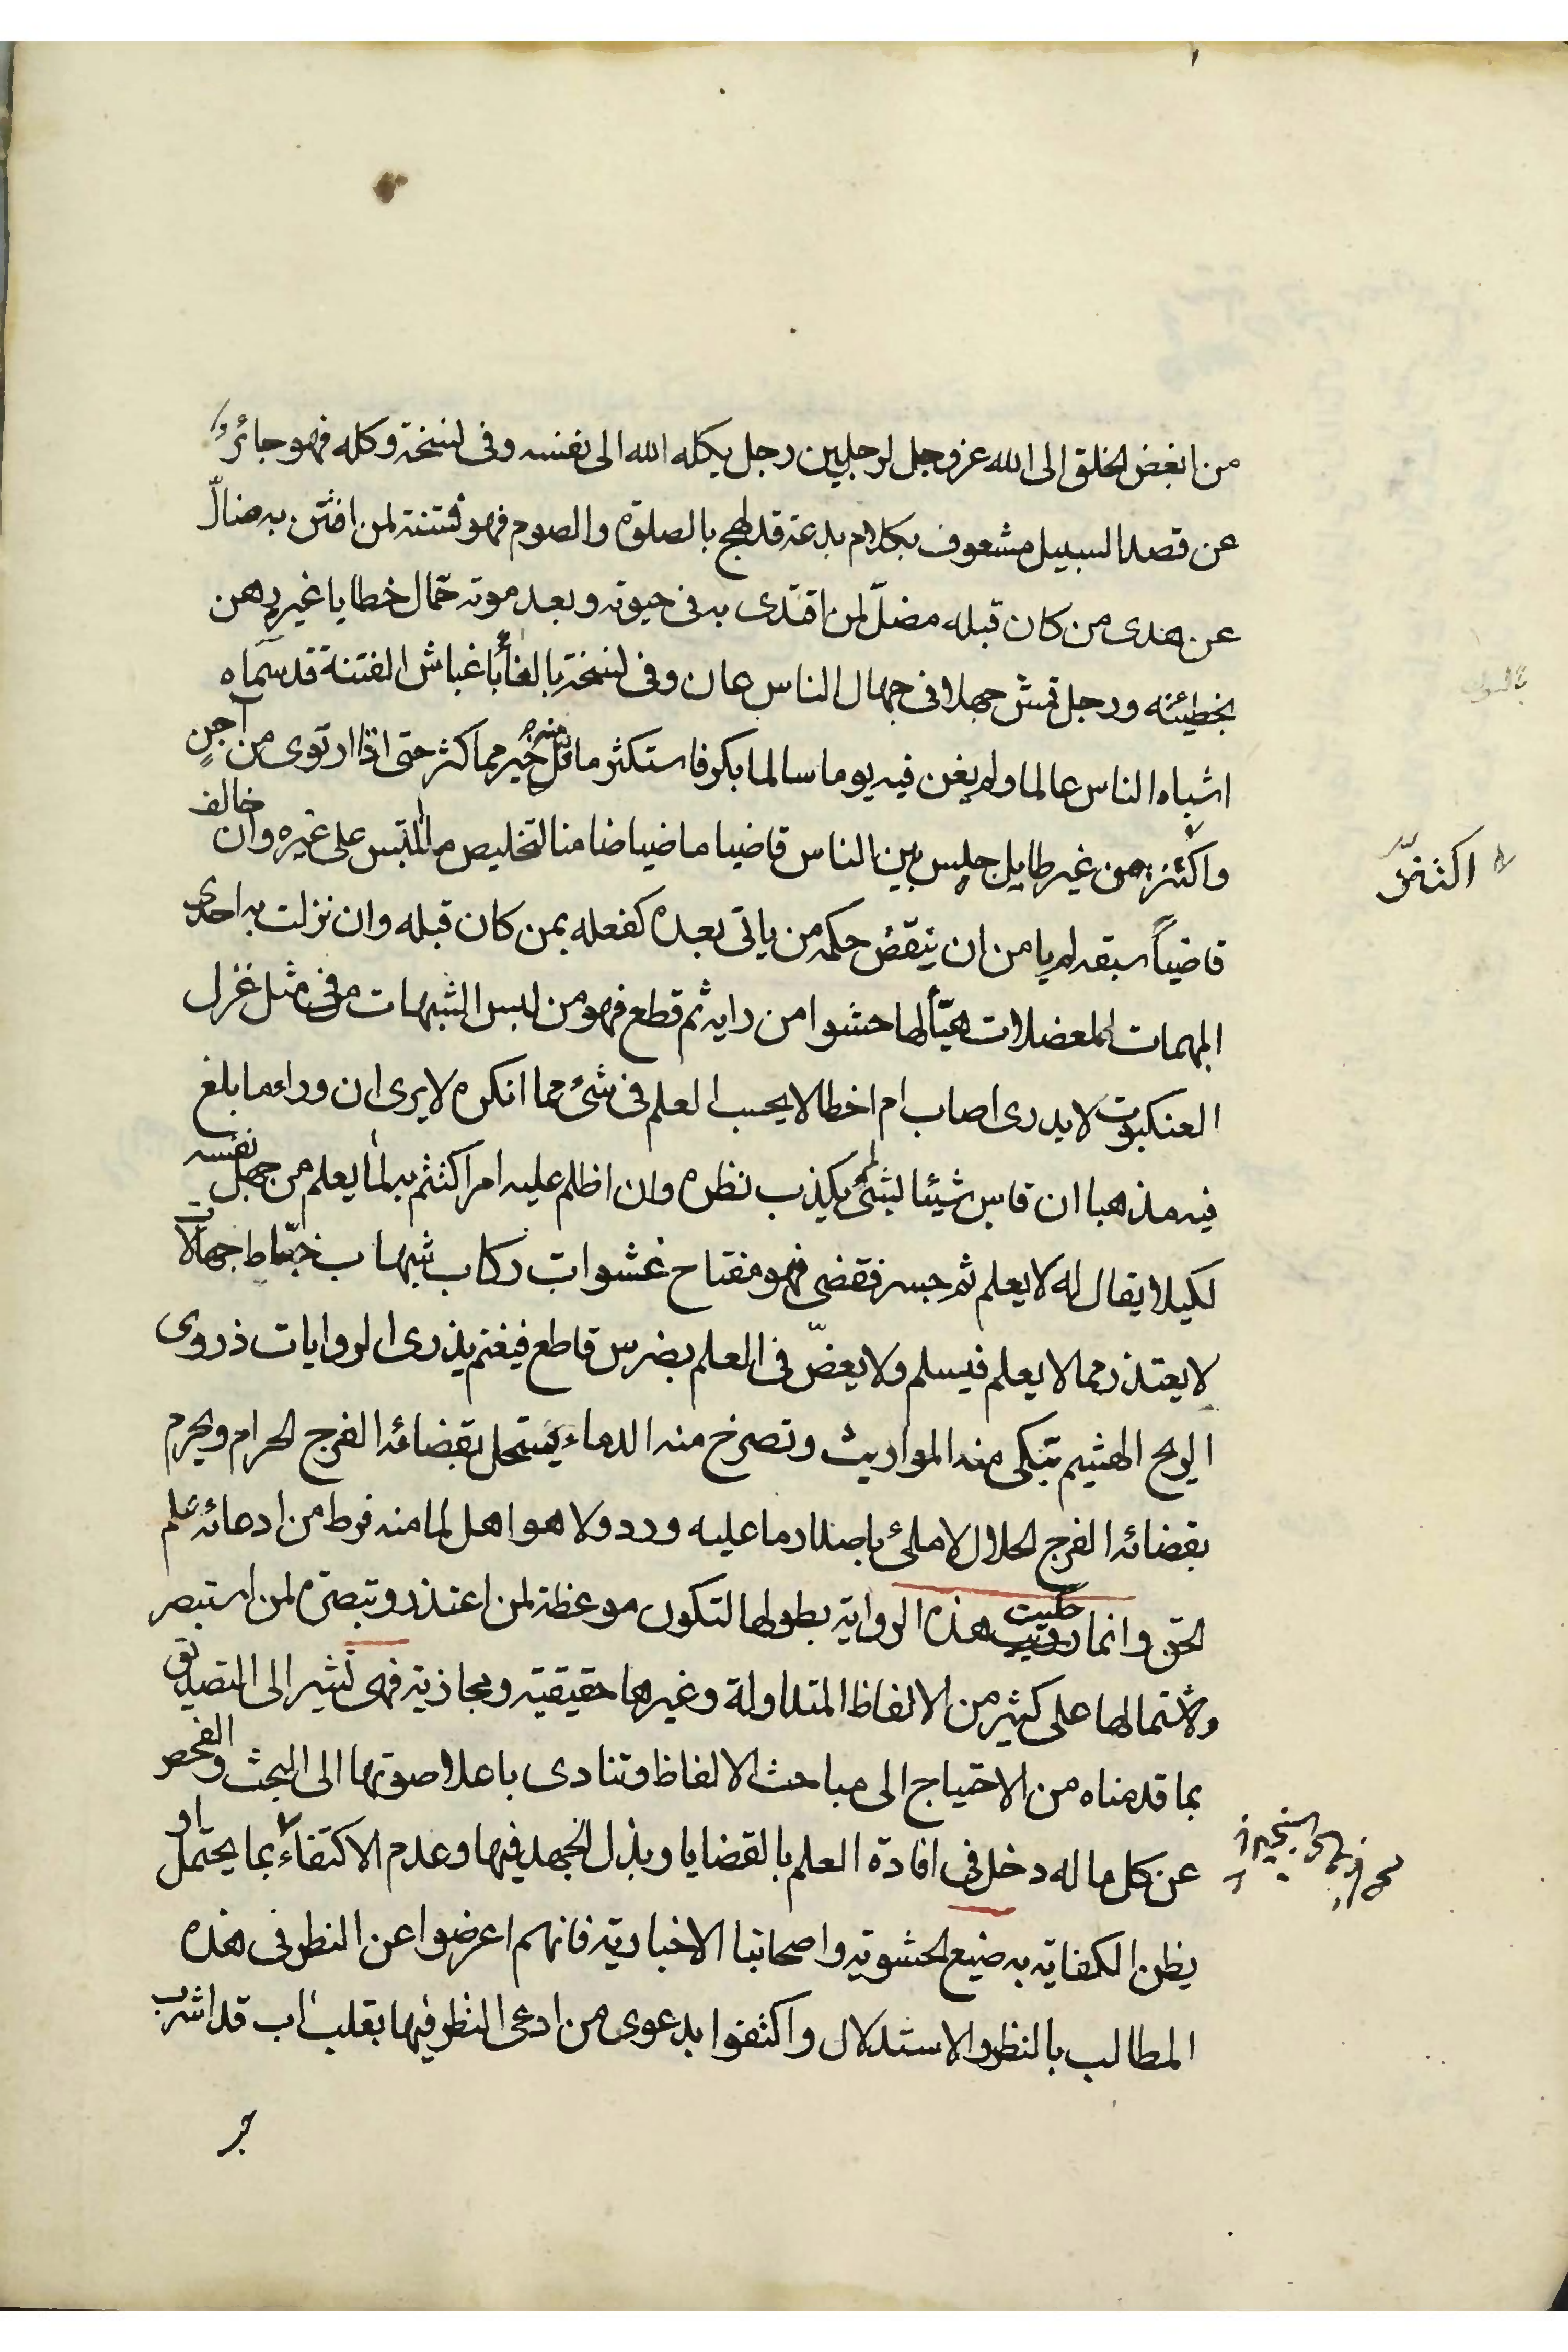 من ابغض الخلق الى الله عز وجل لرجلين رجل يكله الله الى نفسه وفى نسخة وكله فهو جائر
عن قصد السبيل مشعوف بكلام بدعة قد لهج بالصلوة والصوم فهو فتنة لمن افتتن به ضالّ
عن هدى من كان قبله مضلّ لمن اقتدى به فى حيوته وبعد موته حمّال خطايا غيره رهن
بخطيئته ورجل قمش جهلا فى جهال الناس عان وفى نسخة بالغا باغباش الفتنة قد سمّاه
اشباه الناس عالما ولم يغن فيه يوما سالما بكر فاستكثر ما قل منه خير مما كثر حتى اذا ارتوى من آجنٍ
واكثر من غير طايل جلس بين الناس قاضيا ماضيا ضامنا لتخليص ما التبس على غيره وان خالف
اكتنز
قاضياً سبقه لم يامن ان ينقض حكمه من ياتى بعده كفعله بمن كان قبله وان نزلت به احدى
المبهمات المعضلات هيّأ لها حشوا من رايه ثم قطع فهو من لبس الشبهات فى مثل غزل
العنكبوت لا يدرى اصاب ام اخطا لا يحسب العلم فى شئ مما انكره لا يرى ان وراء ما بلغ
فيه مذهبا ان قاس شيئا بشئ لم يكذب نظره وان اظلم عليه امر اكتتم به لما يعلم من جهل نفسه
لكيلا يقال له لا يعلم ثم جسر فقضى فهو مفتاح عشوات ركاب شبهات خبّاط جهالات
لا يعتذر مما لا يعلم فيسلم ولا يعضّ فى العلم بضرس قاطع فيغنم يذرى الروايات ذرو
الريح الهشيم تبكى منه المواريث وتصرخ منه الدماء يستحل بقضائه الفرج الحرام ويحرم
بقضائه الفرج الحلال لا ملئ باصدار ما عليه ورد ولا هو اهل لما منه فرط من ادعائه علم
الحق وانما حكيت هذه الرواية بطولها لتكون موعظة لمن اعتذر وتبصرة لمن استبصر
ولاشتمالها على كثير من الالفاظ المتداولة وغيرها حقيقية ومجازية فهى تشير الى التصديق
بما قدمناه من الاحتياج الى مباحث الالفاظ وتنادى باعلا صوتها الى البحث والفحص
عن كل ما له دخل فى افادة العلم بالقضايا وبذل الجهد فيها وعدم الاكتفاء بما يحتمل او
يظن الكفاية به صنيع الحشوية واصحابنا الاخبارية فانهم اعرضوا عن النظر فى هذه
المطالب بالنظر والاستدلال واكتفوا بدعوى من ادعى النظر فيها بقلب قد اشرب